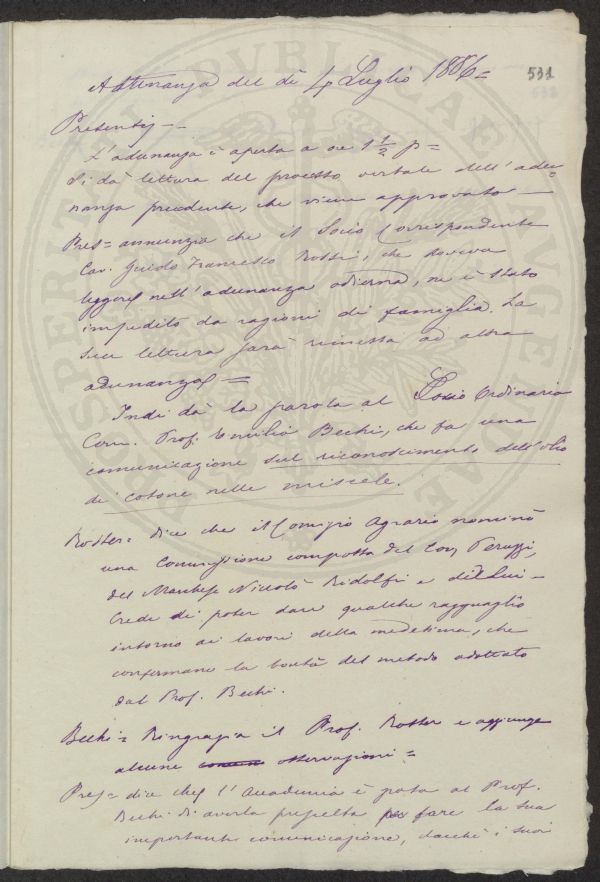 531
Adunanza del dì 4 Luglio 1886=
Presenti -
L'adunanza è aperta a ore 1 1/2 p=
Si dà lettura del processo verbale dell'adu=
nanza precedente, che viene approvato -
Pres= annunzia che il Socio Corrispondente
Cav. Guido Francesco Rossi, che doveva
leggere nell'adunanza odierna, ne è stato
impedito da ragioni di famiglia. La
sua lettura sarà rimessa ad altra
adunanza =
Indi dà la parola al Socio Ordinario
Com. Prof. Emilio Bechi, che fa una
comunicazione sul riconoscimento dell'olio
di cotone nelle miscele.
Roster= dice che il Comizio Agrario nominò
una Commissione composta del Com. Peruzzi,
del Marchese Niccolò Ridolfi e di Lui -
Crede di poter dare qualche ragguaglio
intorno ai lavori della medesima, che
confermano la bontà del metodo adottato
dal Prof. Bechi.
Bechi= Ringrazia il Prof. Roster e aggiunge
alcune osservazioni=
Pres= dice che l'Accademia è grata al Prof.
Bechi di averla prescelta per fare la sua
importante comunicazione, dacchè i suoi
PROSPERITATI PVBLICAE AVGENDAE